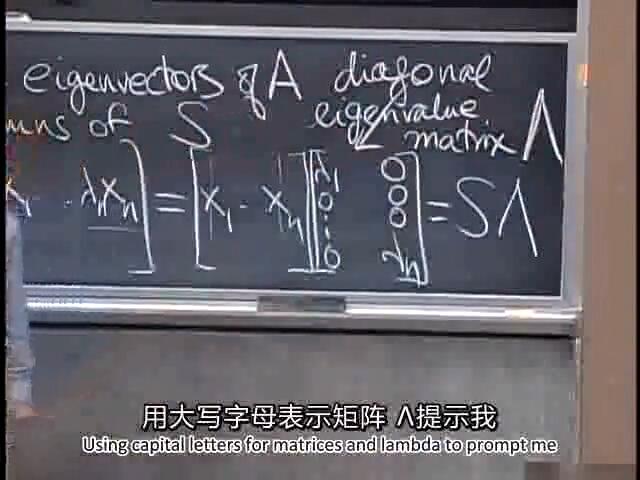 eigenvectors of A diagonal
eigenvalue
mns of S matrix Λ
λₙxₙ] = [x₁ · xₙ][λ₁ 0 ⋮ 0 0 0 0 λₙ] = SΛ
用大写字母表示矩阵 Λ提示我
Using capital letters for matrices and lambda to prompt me